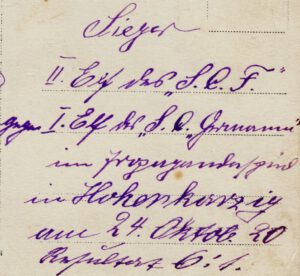 Sieger
II. Elf des „S.C.F."
gegen I. Elf des „S.C. Germania"
im Propagandaspiel
in Hohenkarzig
am 24. Oktob. 20
Resultat 6:1.